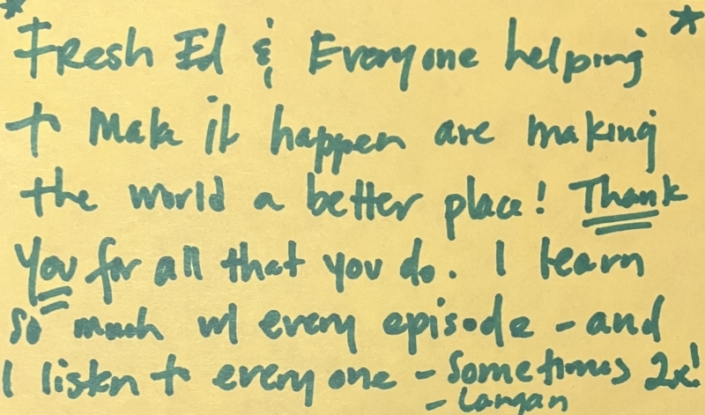 * Fresh Ed & Everyone helping *
+ Make it happen are making
the world a better place! Thank
You for all that you do. I learn
so much w/ every episode - and
I listen + every one - Sometimes 2x!
- Langan